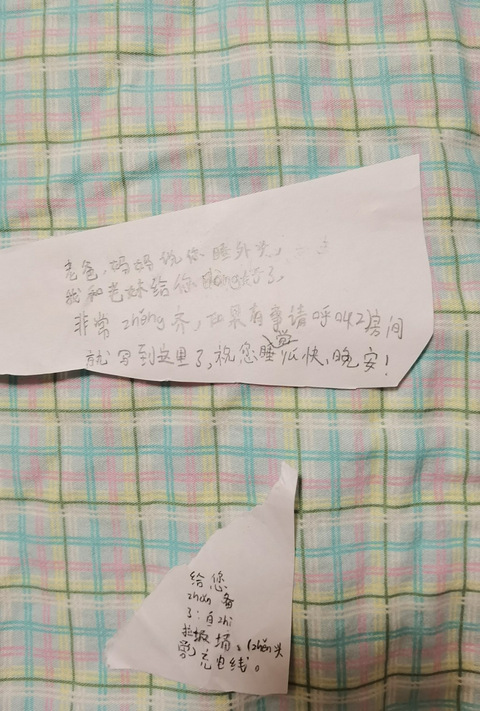 老爸，妈妈说你睡外头，
我和老妹给你
非常zhěng齐，如果有事请呼叫2房间
就写到这里了，祝您睡觉愉快，晚安！
给您
zhǔn备
了：自zhi
垃圾桶。(zhěn头
旁)充电线。